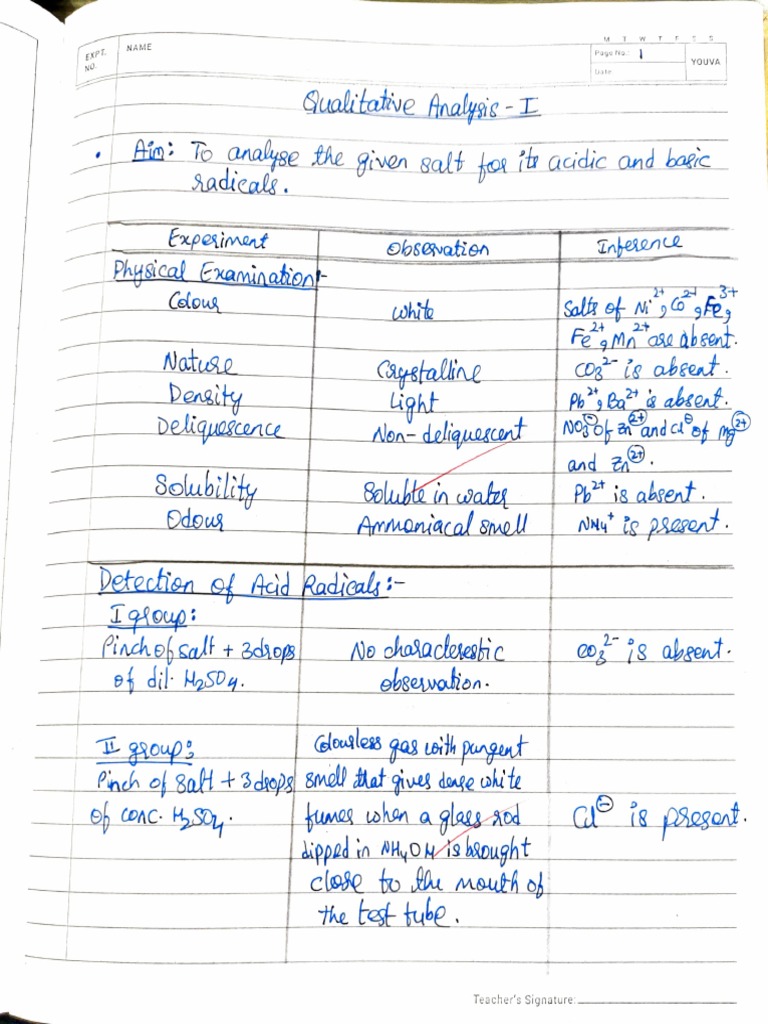 EXPT. NO.
NAME
M T W T F S S
Page No.: 1
Date:
YOUVA
Qualitative Analysis - I
• Aim: To analyse the given salt for its acidic and basic
radicals.
Experiment Observation Inference
Physical Examination:-
Colour White Salts of Ni²⁺, Co²⁺, Fe³⁺,
Fe²⁺, Mn²⁺ are absent.
Nature Crystalline CO₃²⁻ is absent.
Density Light Pb²⁺, Ba²⁺ is absent.
Deliquescence Non-deliquescent NO₃⊖ of Zn²⁺ and Cl⊖ of Mg²⁺
and Zn²⁺.
Solubility Soluble in water Pb²⁺ is absent.
Odour Ammoniacal smell NH₄⁺ is present.
Detection of Acid Radicals:-
I group:
Pinch of salt + 3drops No characterestic CO₃²⁻ is absent.
of dil. H₂SO₄. observation.
II group: Colourless gas with pungent
Pinch of salt + 3 drops smell that gives dense white
of conc. H₂SO₄. fumes when a glass rod Cl⊖ is present.
dipped in NH₄OH is brought
close to the mouth of
the test tube.
Teacher's Signature: